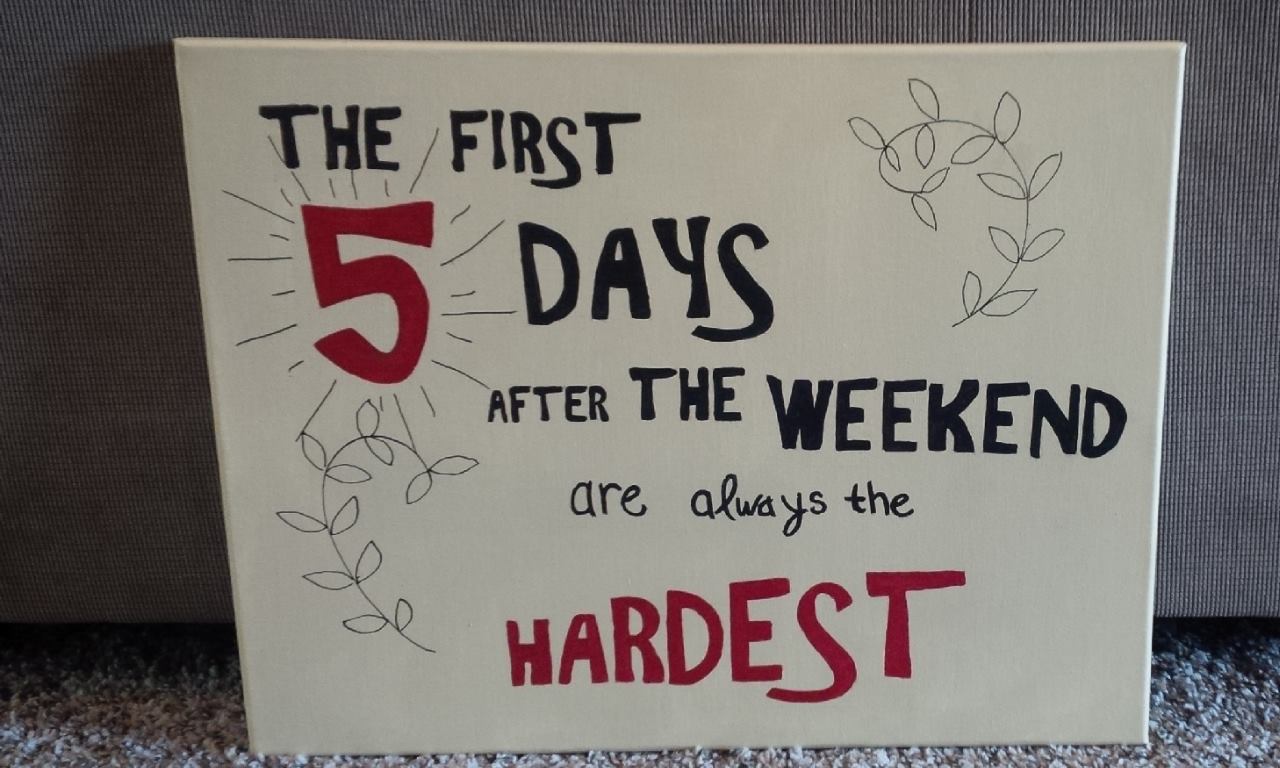 THE FIRST
5 DAYS
AFTER THE WEEKEND
are always the
HARDEST